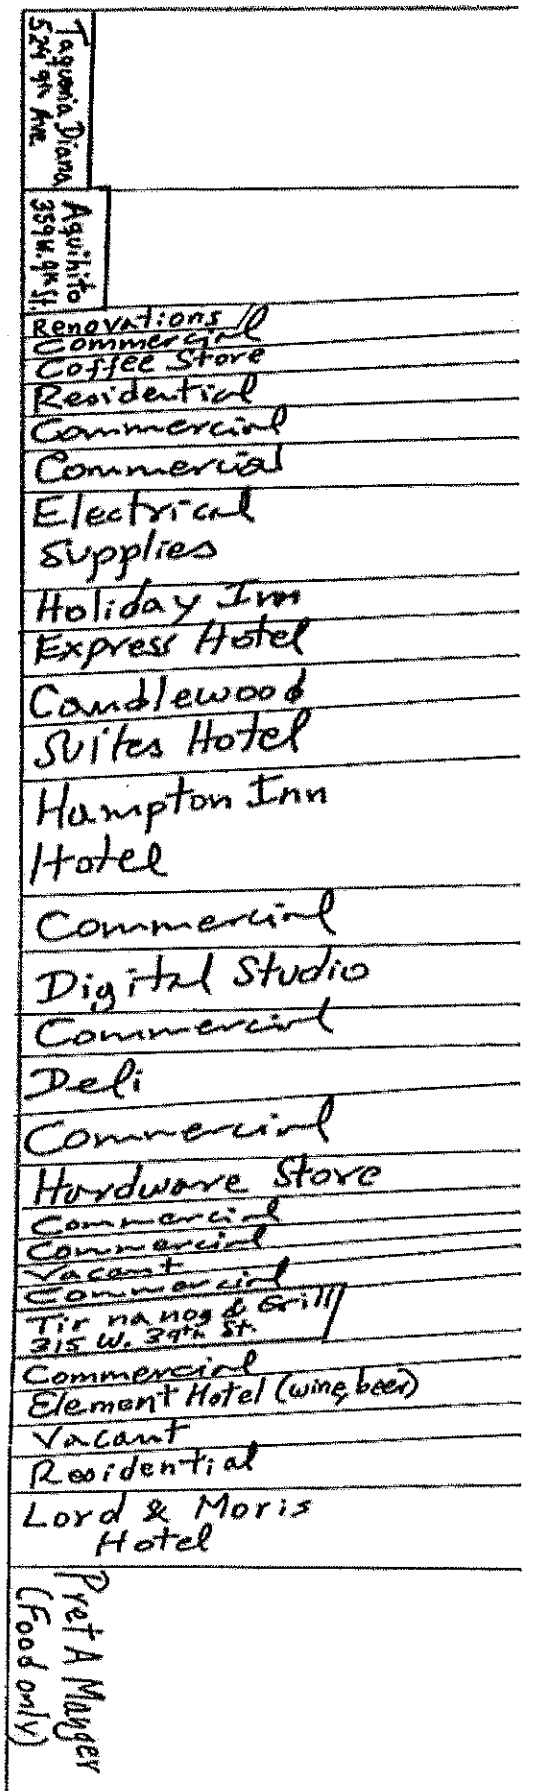 Taqueria Diana
524 9th Ave.
Aquihito
359 W. 9th St.
Renovations/
Commercial
Coffee Store
Residential
Commercial
Commercial
Electrical
Supplies
Holiday Inn
Express Hotel
Candlewood
Suites Hotel
Hampton Inn
Hotel
Commercial
Digital Studio
Commercial
Deli
Commercial
Hardware Store
Commercial
Commercial
Vacant
Commercial
Tir na nog & Grill
315 W. 39th St.
Commercial
Element Hotel (wine, beer)
Vacant
Residential
Lord & Moris
Hotel
Pret A Manger
(Food only)